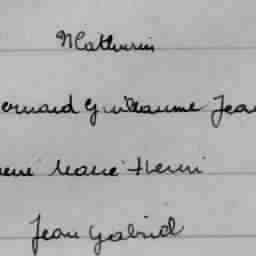 Mathurin
ernard Guillaume Jean
rené Marie Henri
Jean Gabriel